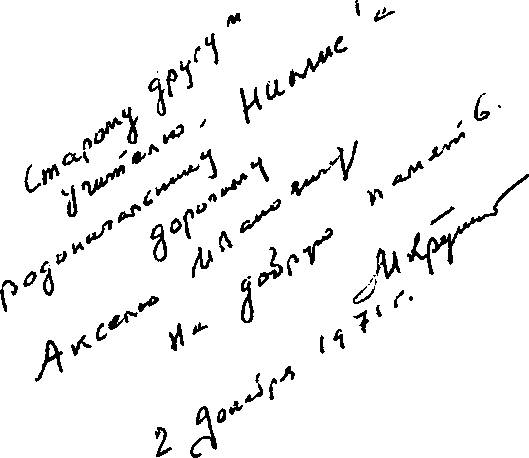 Старому другу и
учителю,
родоначальнику
дорогому
Акселю Ивановичу
на добрую память.
2 декабря 1971 г.